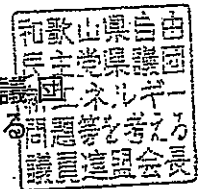 和歌山県自由
民主党県議団
新エネルギー
問題等を考える
議員連盟会長
議団
る